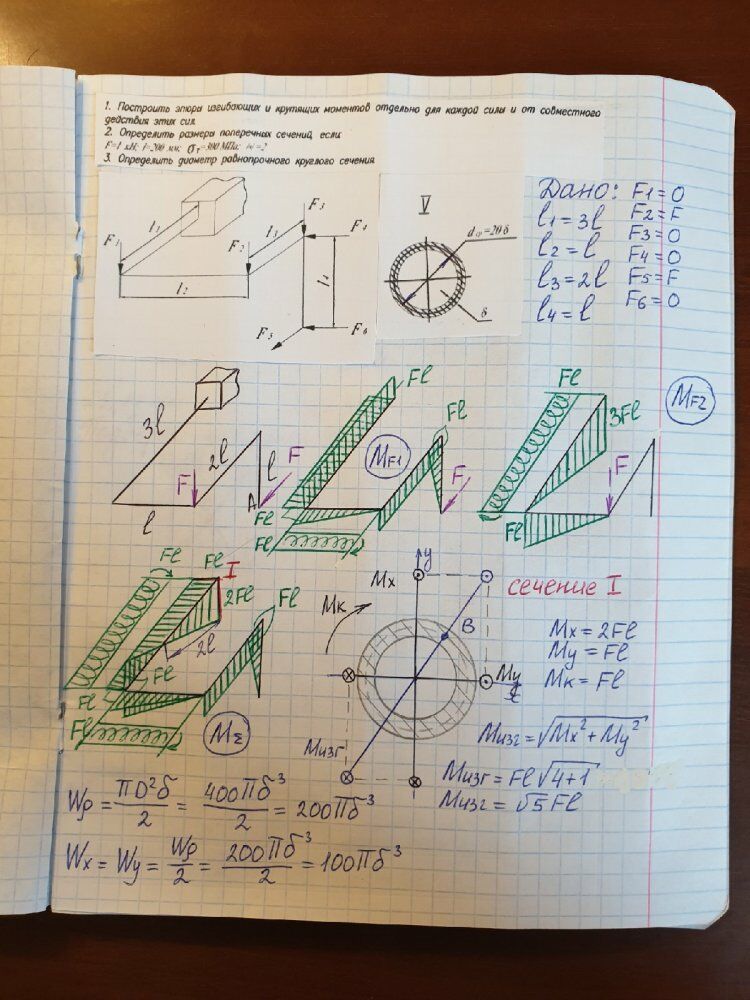 1. Построить эпюры изгибающих и крутящих моментов отдельно для каждой силы и от совместного
действия этих сил
2. Определить размеры поперечных сечений, если
F=1 кН; l=200 мм; σт=300 МПа; [n]=2
3. Определить диаметр равнопрочного круглого сечения
Дано:
l1 = 3l
l2 = l
l3 = 2l
l4 = l
F1 = 0
F2 = F
F3 = 0
F4 = 0
F5 = F
F6 = 0
l1
F1
l2
F2
l3
F3
F4
l4
F5
F6
V
dср=20δ
δ
3l
2l
F
l
l
F
A
Fl
Fl
MF1
F
Fl
Fl
Fl
3Fl
MF2
F
Fl
Fl
Fl
I
2Fl
2l
Fl
Fl
Fl
Fl
MΣ
Mк
Mx
y
B
My
x
Mизг
сечение I
Mx = 2Fl
My = Fl
Mк = Fl
Mизг = √Mx² + My²
Mизг = Fl√4+1
Mизг = √5 Fl
Wp = πD²δ/2 = 400πδ³/2 = 200πδ³
Wx = Wy = Wp/2 = 200πδ³/2 = 100πδ³